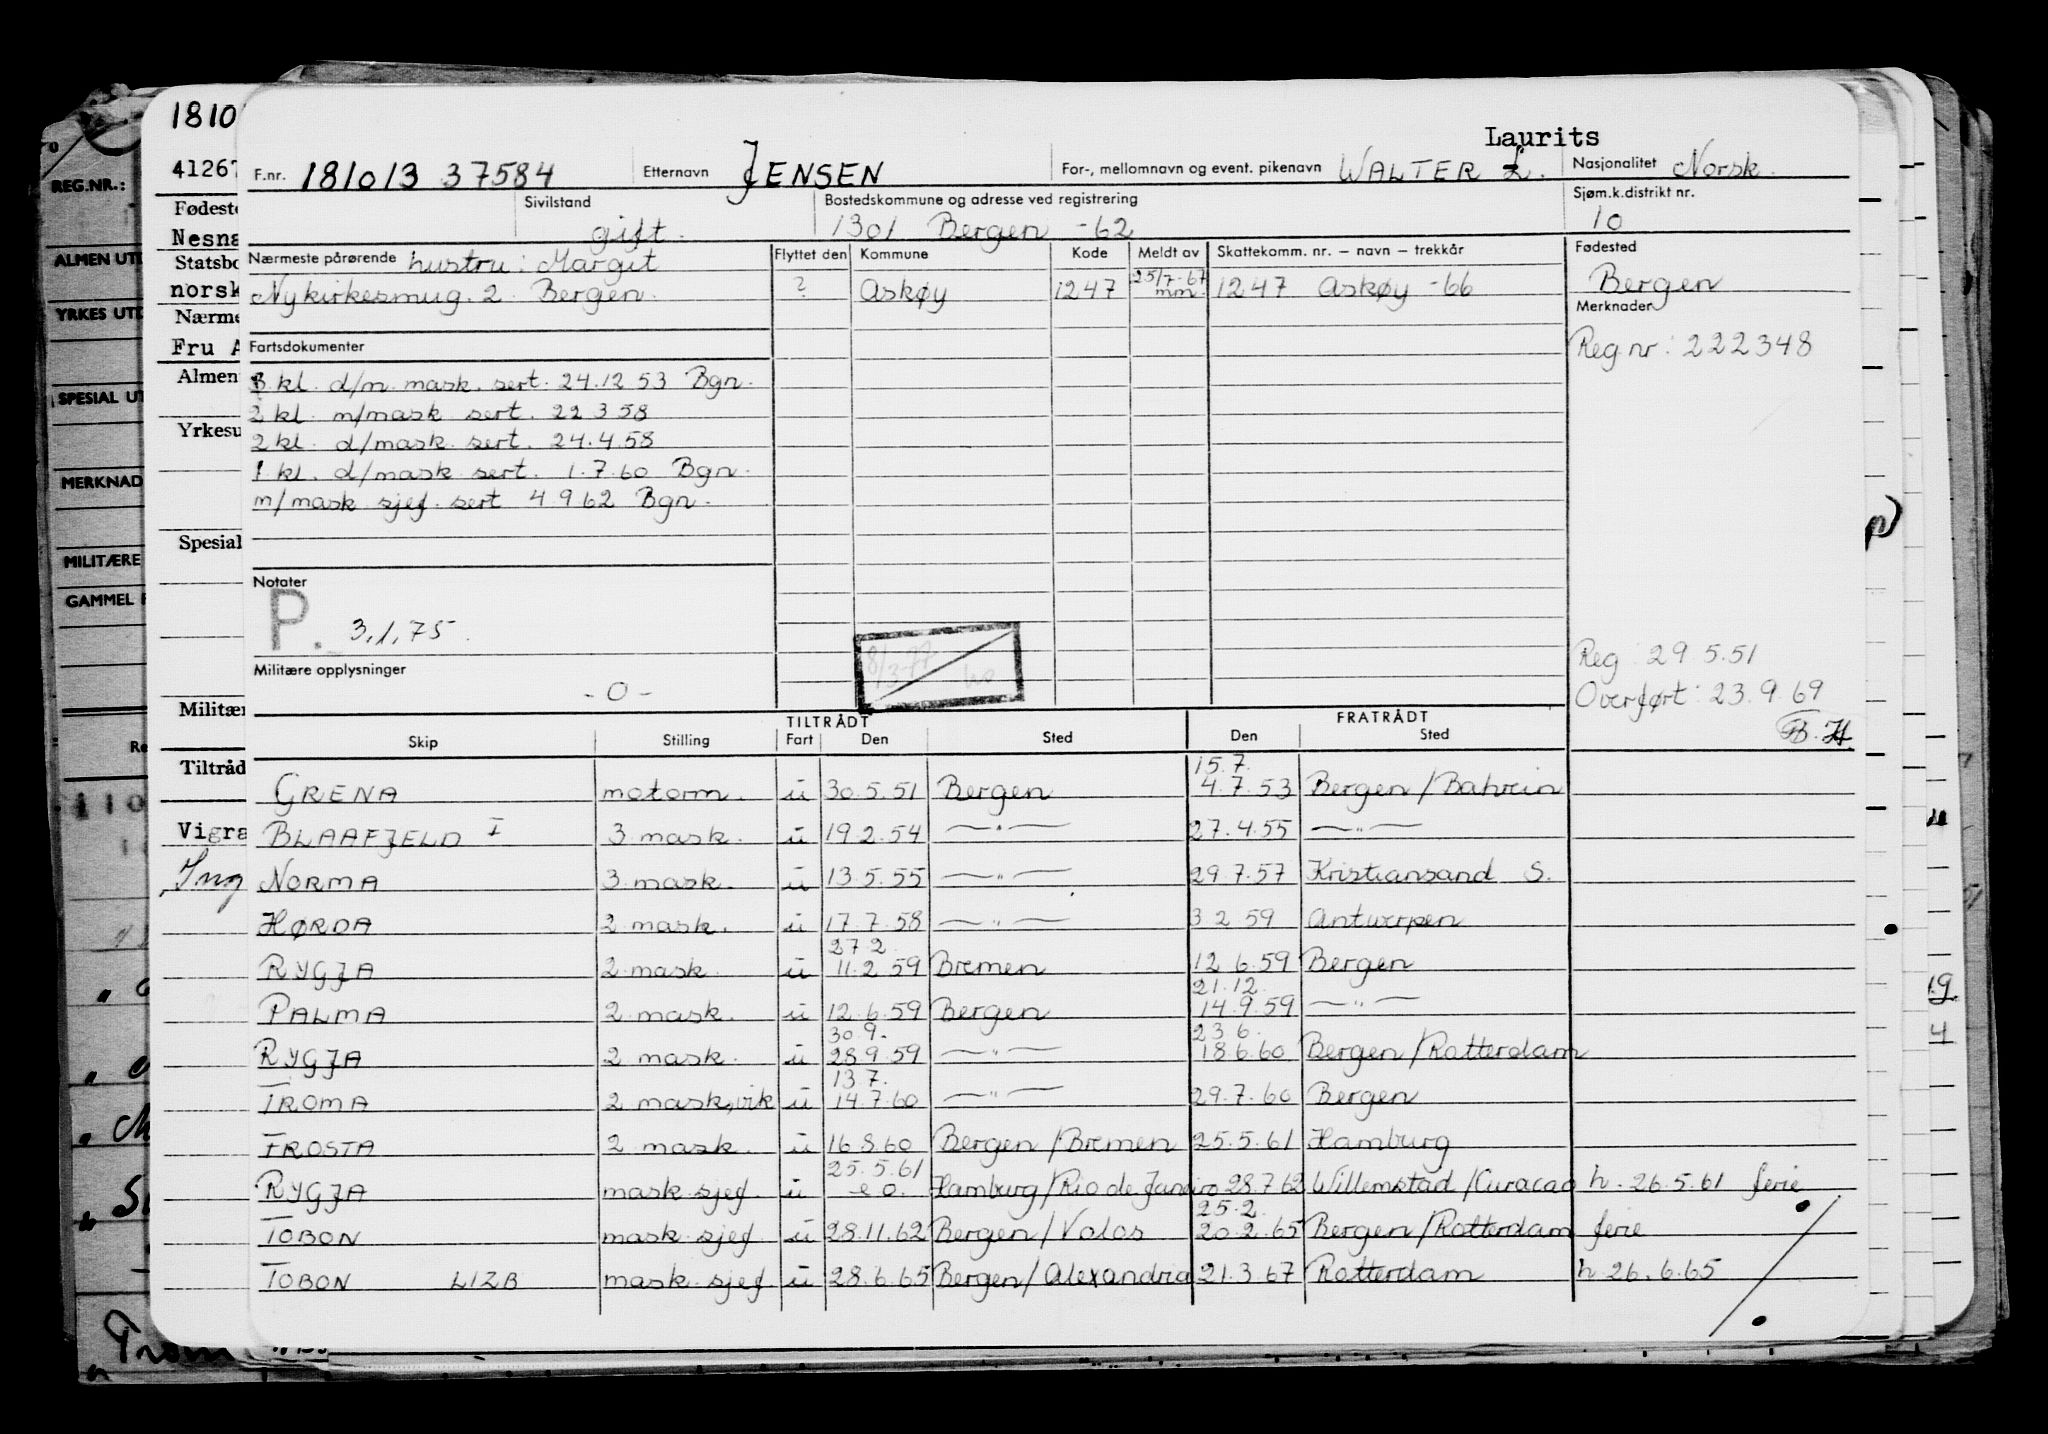 1810
41267
Fødeste
Nesna
Statsbo
norsk
Nærme
Fru A
Almen
Yrkesu
Spesial
Militær
Tiltråd
Vigra
Ing
REG.NR.:
ALMEN UTD
YRKES UTD
SPESIAL UT
MERKNAD
MILITÆRE
GAMMEL
Laurits
F.nr. 181013 37584 Etternavn JENSEN For-, mellomnavn og event. pikenavn WALTER L. Nasjonalitet Norsk.
Sivilstand gift. Bostedskommune og adresse ved registrering 1301 Bergen -62 Sjøm.k.distrikt nr. 10
Nærmeste pårørende hustru: Margit Flyttet den Kommune Kode Meldt av Skattekomm. nr. – navn – trekkår Fødested
Nykirkesmug. 2 Bergen. ? Askøy 1247 25/7-67 mm. 1247 Askøy -66 Bergen
Merknader
Fartsdokumenter Reg nr: 222348
3 kl. d/m. mask. sert. 24.12 53 Bgn.
2 kl. m/mask sert. 22 3 58
2 kl. d/mask. sert. 24.4.58
1 kl. d/mask sert. 1.7.60 Bgn.
m/mask sjef. sert 4 9 62 Bgn.
Notater
P. 3.1.75.
8/3-77
Reg: 29 5.51
Militære opplysninger
-0-
Overført: 23.9.69
B.H.
TILTRÅDT FRATRÅDT
Skip Stilling Fart Den Sted Den Sted
15.7.
GRENA motorm. u 30.5.51 Bergen 4.7.53 Bergen/Bahrein
BLAAFJELD I 3 mask. u 19 2.54 —"— 27.4.55 —"—
NORMA 3. mask. u 13.5.55 —"— 29.7.57 Kristiansand S.
HØRDA 2 mask. u 17.7.58 —"— 3 2 59 Antwerpen
27 2.
RYGJA 2. mask. u 11.2 59 Bremen 12 6.59 Bergen
21.12.
PALMA 2 mask. u 12.6.59 Bergen 14.9.59 —"—
30.9. 23 6.
RYGJA 2 mask. u 28.9.59 —"— 18.6.60 Bergen/Rotterdam
13 7.
TROMA 2 mask, vik u 14.7.60 —"— 29.7.60 Bergen
FROSTA 2 mask. u 16 8 60 Bergen/Bremen 25.5.61 Hamburg
25.5.61
RYGJA mask sjef. u e o. Hamburg/Rio de Janeiro 28.7 62 Willemstad/Curacao h. 26.5.61 ferie
25.2.
TOBON mask. sjef u 28.11.62 Bergen/Volos 20.2.65 Bergen/Rotterdam ferie
TOBON LIZB mask. sjef. u 28.6.65 Bergen/Alexandria 21.3.67 Rotterdam h 26.6.65